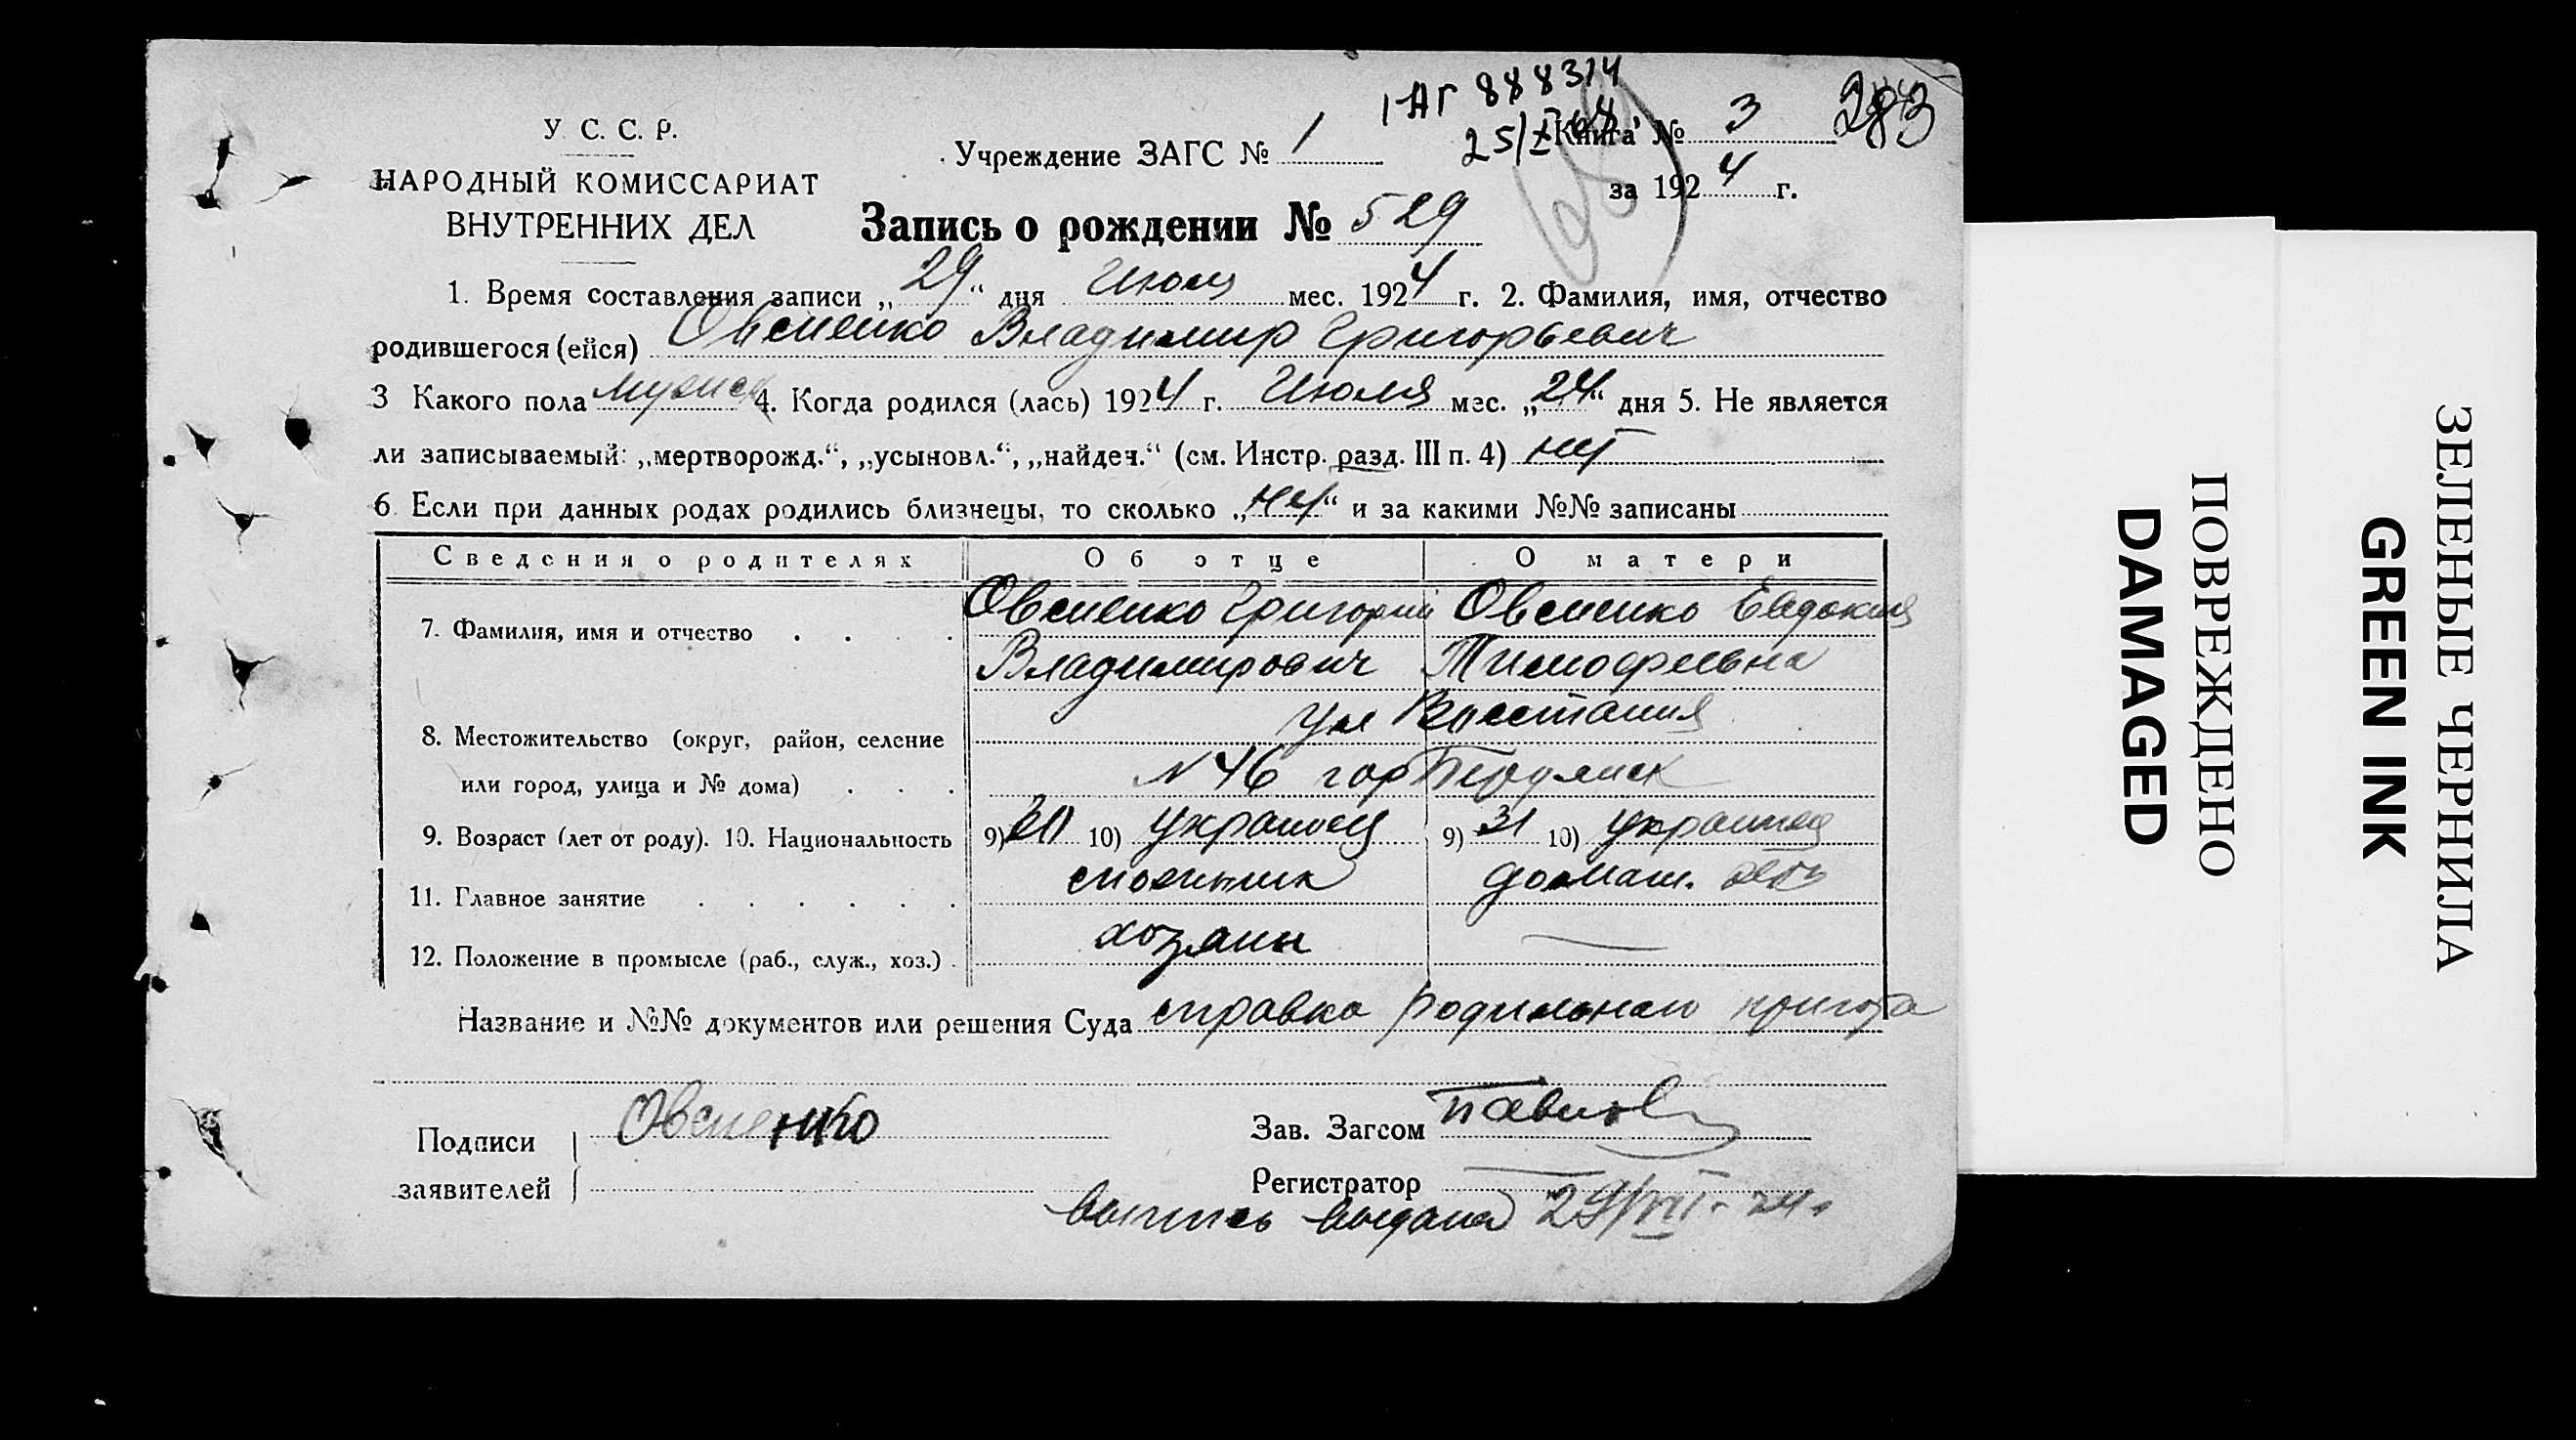 1-АГ 888314
25/X 64
У. С. С. Р.
НАРОДНЫЙ КОМИССАРИАТ
ВНУТРЕННИХ ДЕЛ
Учреждение ЗАГС № 1
Книга № 3
283
за 1924 г.
Запись о рождении № 529
1. Время составления записи „29“ дня Июля мес. 1924 г. 2. Фамилия, имя, отчество
родившегося (ейся) Овсиенко Владимир Григорьевич
3 Какого пола мужск 4. Когда родился (лась) 1924 г. Июля мес. „24“ дня 5. Не является
ли записываемый: „мертворожд.“, „усыновл.“, „найден.“ (см. Инстр. разд. III п. 4) нет
6. Если при данных родах родились близнецы, то сколько „нет“ и за какими №№ записаны
Сведения о родителях Об отце О матери
7. Фамилия, имя и отчество Овсиенко Григорий Овсиенко Евдокия
Владимирович Тимофеевна
ул Восстания
8. Местожительство (округ, район, селение
или город, улица и № дома) N 46 гор Бердянск
9. Возраст (лет от роду). 10. Национальность 9) 10) украинец 9) 31 10) украинка
11. Главное занятие домаш.
12. Положение в промысле (раб., служ., хоз.) хозяин —
Название и №№ документов или решения Суда справка родильного приюта
Подписи заявителей Овсиенко
Зав. Загсом Павлов
Регистратор
выпись выдана 29/VII-24.
ПОВРЕЖДЕНО
DAMAGED
ЗЕЛЕНЫЕ ЧЕРНИЛА
GREEN INK